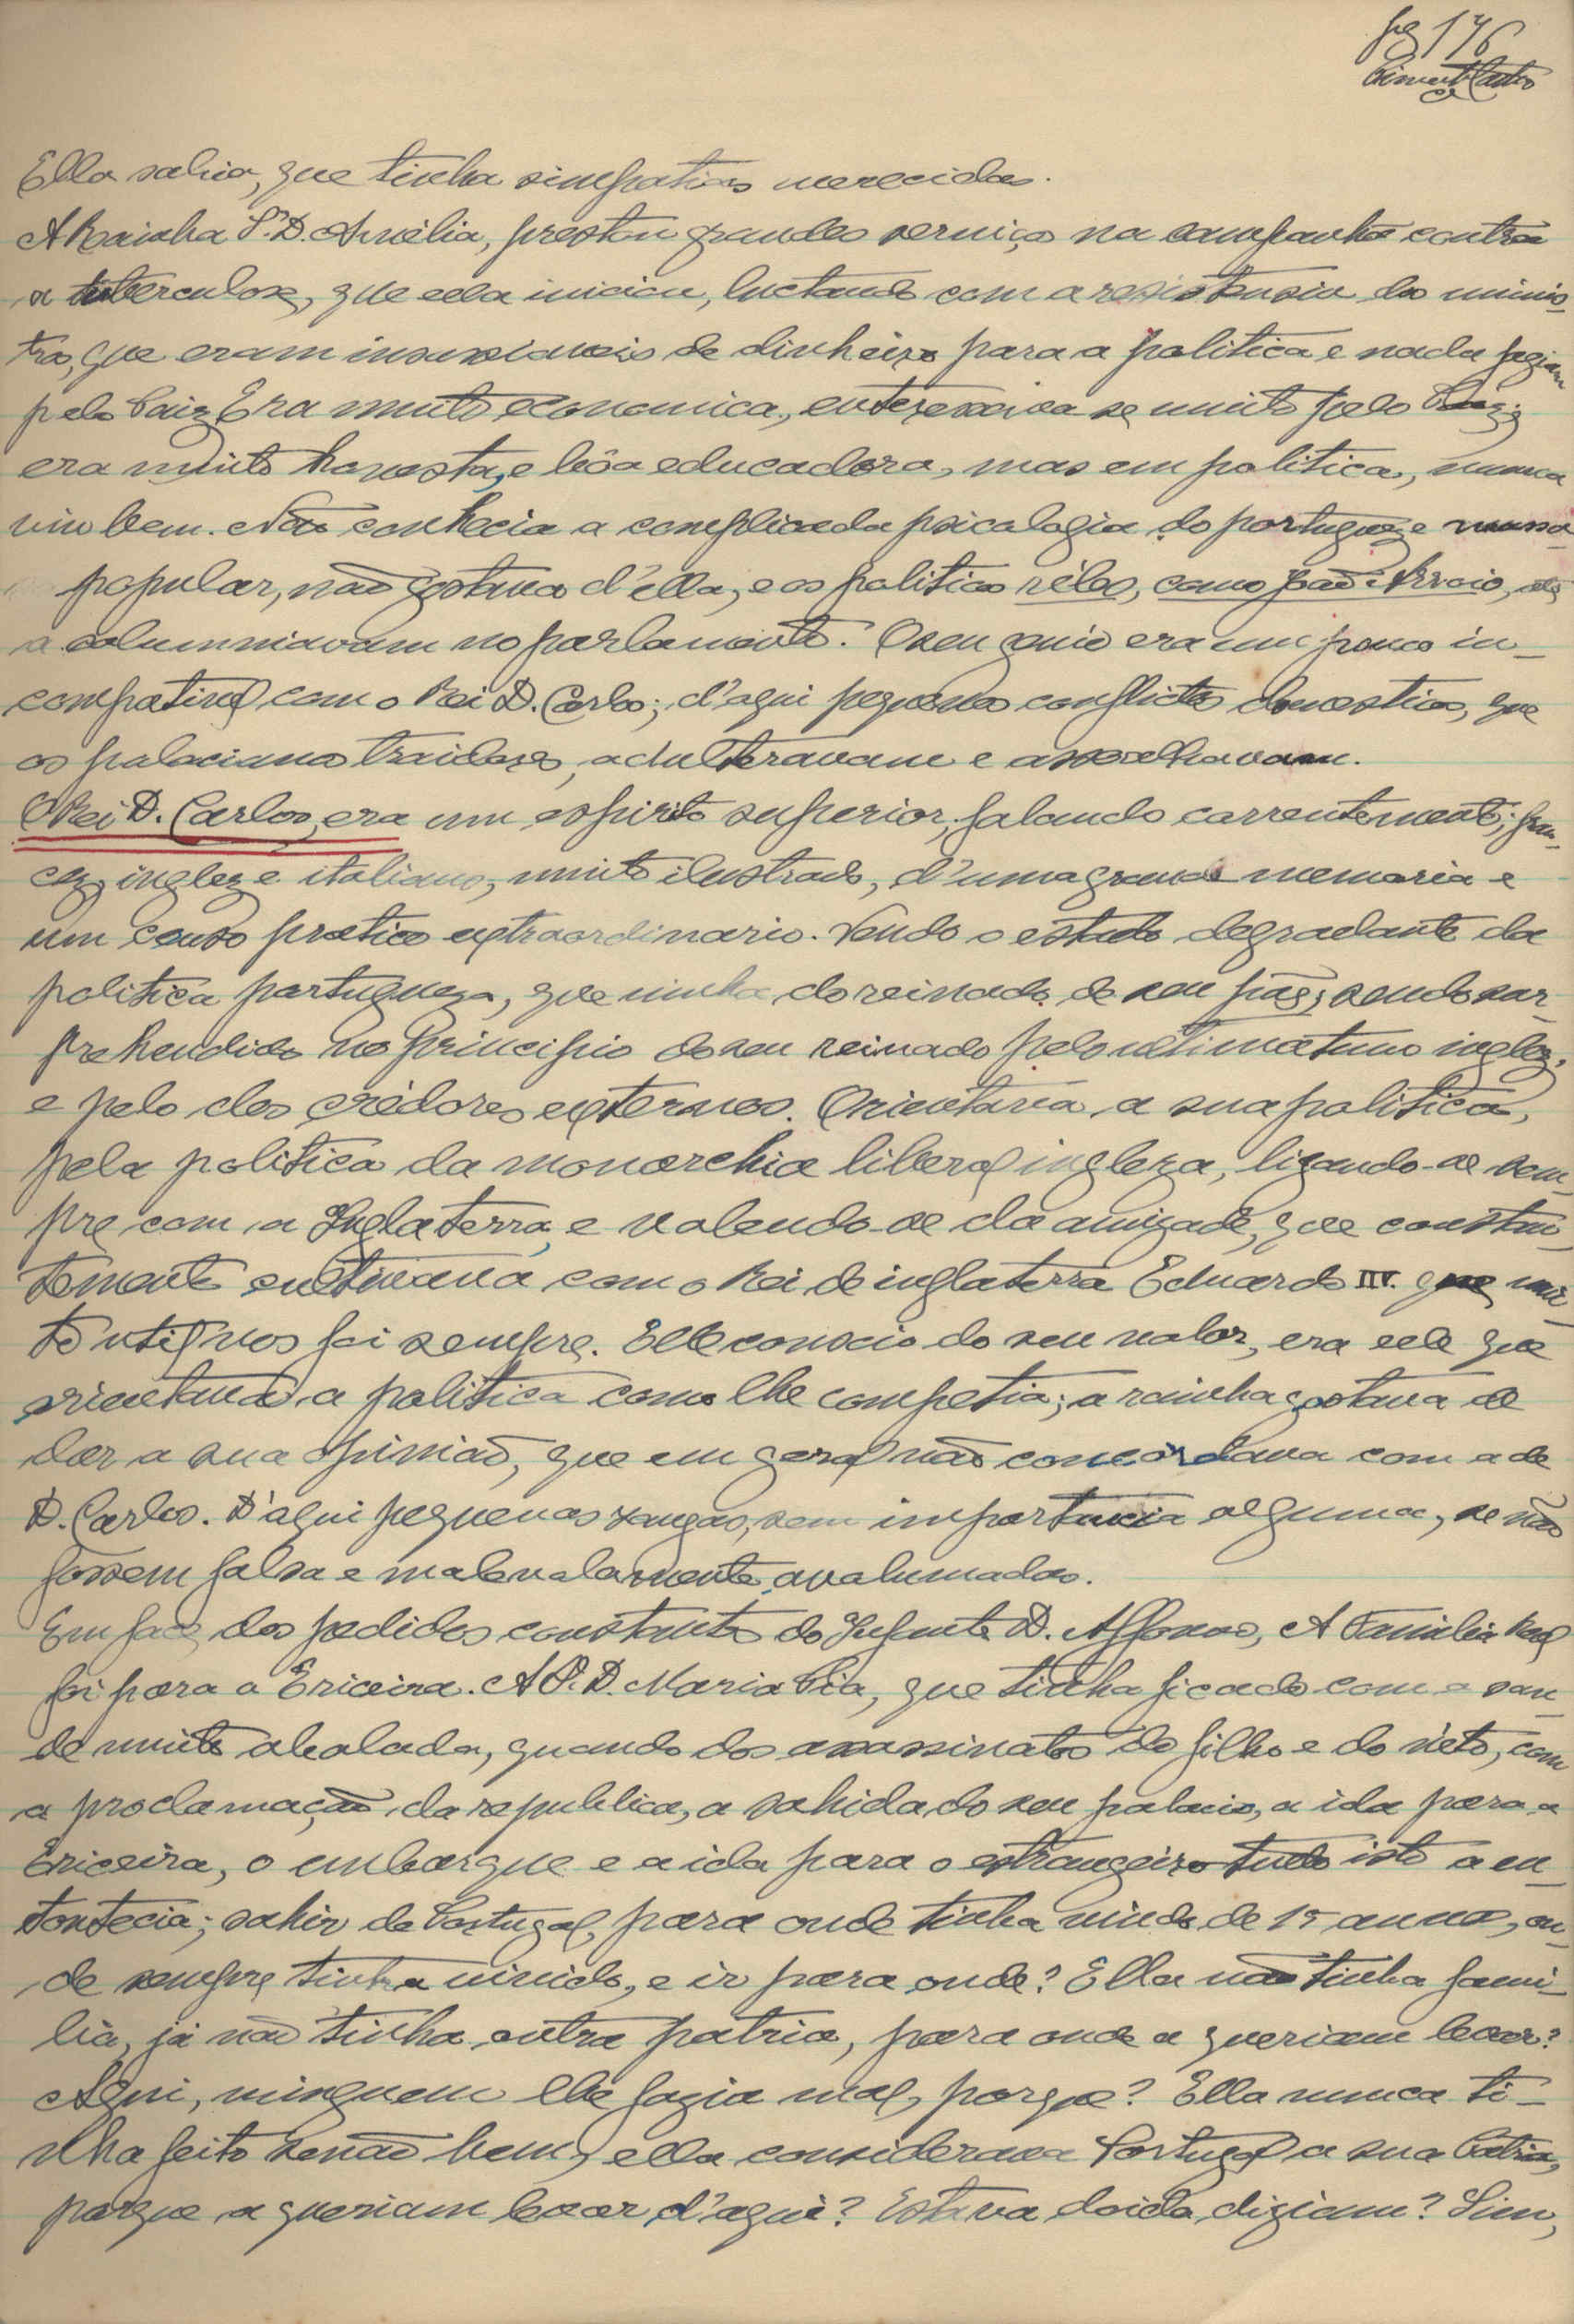 fg 176
Ella sabia, que tinha simpatias merecidas.
A Rainha S.D. Amélia, prestou grandes serviços na campanha contra
a tuberculose, que ella iniciou, luctando com a resistensia dos minis-
tros, que eram insaciaveis de dinheiro para a politica e nada faziam
pelo Paiz Era muito economica, enteressava se muito pelo Paiz;
era muito honesta, e bôa educadora, mas em politica, nunca
viu bem. Não conhecia a complicada psicalogia do portuguez e massa
popular, não gostava d'ella, e os politicos réles, como João Arroio, até
a calumniavam no parlamento. O seu genio era um pouco in-
compativel com o Rei D. Carlos; d'aqui pequenos conflictos domesticos, que
os palacianos traidores, adulteravam e assoalhavam.
O Rei D. Carlos, era um espirito superior, falando correntemente; fran-
cez, inglez e italiano, muito ilustrado, d'uma grande memoria e
um censo pratico extraordinario. Vendo o estado degradante da
politica portugueza, que vinha do reinado de seu pae, sendo sur-
prehendido no principio do seu reinado pelo ultimatum inglez,
e pelo dos crédores externos. Orientava a sua politica,
pela politica da monarchia liberal ingleza, ligando-se sem-
pre com a Inglaterra, e valendo-se da amizade, que constan-
temente cultivava com o Rei de inglaterra Eduardo IIV. que mui-
to util nos foi sempre. Elle conscio do seu valor, era elle que
orientava a politica como lhe competia; a rainha gostava de
dar a sua opinião, que em geral não concordava com a de
D. Carlos. D'aqui pequenas zangas, sem importancia alguma, se não
fossem falsa e malevolamente avolumadas.
Em face dos pedidos constantes do Infante D. Affonso, A Familia Real
foi para a Ericeira. A S.D. Maria Pia, que tinha ficado com a sau-
de muito abalada, quando dos assassinatos do filho e do néto, com
a proclamação da republica, a sahida do seu palacio, a ida para a
Ericeira, o embarque e a ida para o estrangeiro tudo isto a en-
tontecia; sahir de Portugal, para onde tinha vindo de 15 annos, on-
de sempre tinha vivido, e ir para onde? Ella não tinha fami-
lia, já não tinha outra patria, para onde a queriam levar?
Aqui, ninguem lhe fazia mal, porque? Ella nunca ti-
nha feito senão bem, ella considerava Portugal a sua Patria,
porque a queriam levar d'aqui? Estava doida, diziam? Sim,